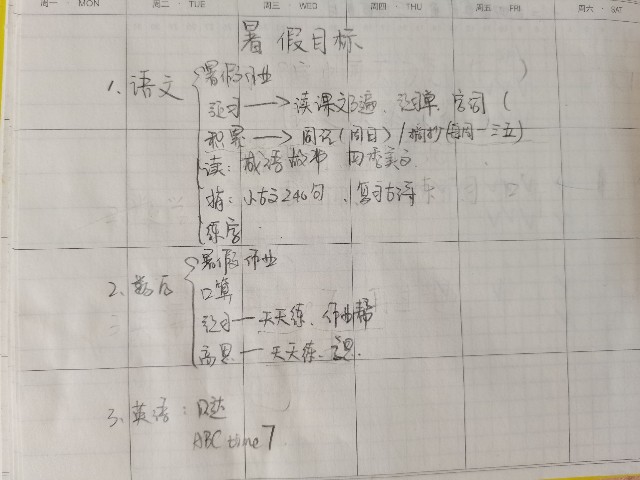 周一 · MON 周二 · TUE 周三 · WED 周四 · THU 周五 · FRI 周六 · SAT
暑假目标
1. 语文 暑假作业
预习 → 读课文3遍、预习单、字词 (
)
积累 → 周记(周日) / 摘抄(每周一三五)
读: 成语故事 四季美文
背: 小古文240句、复习古诗
练字
2. 数学 暑假作业
口算
预习 — 天天练、作业帮
高思 — 天天练
3. 英语: 口达
ABC time 7